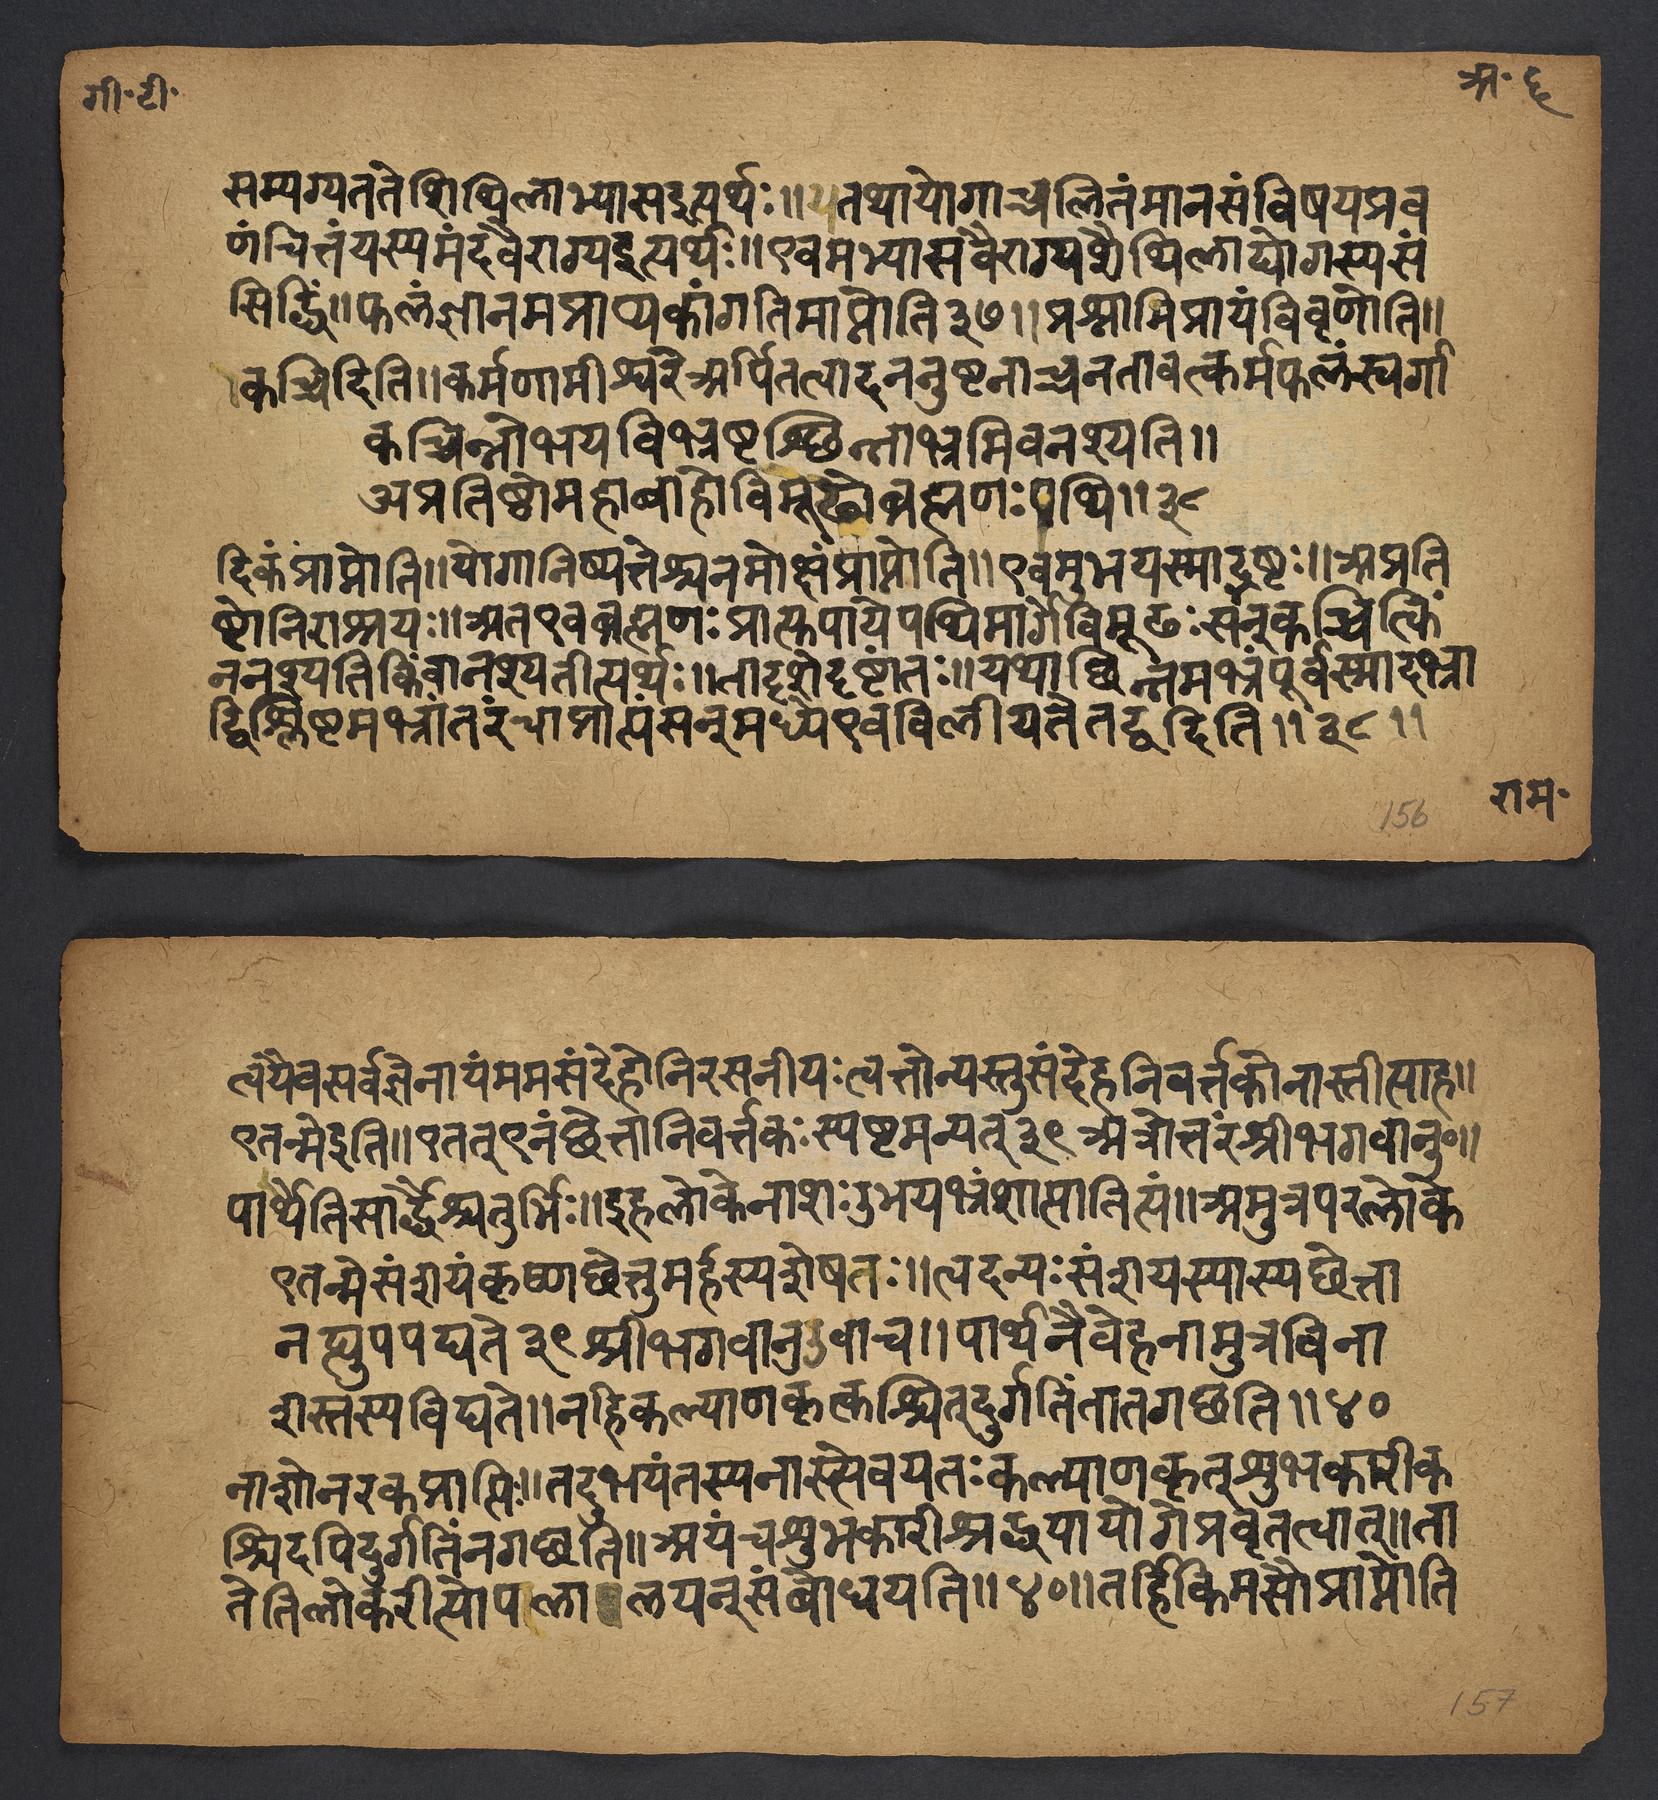 गी॰टी॰
अ॰ ६
सम्यग्यततेशिथिलाभ्यासइत्यर्थः॥यतथायोगाच्चलितंमानसंविषयप्रव
णंचित्तंयस्यमंदवैराग्यइत्यर्थः॥एवमभ्यासवैराग्यशैथिलाद्योगस्यसं
सिद्धिं॥फलंज्ञानमप्राप्यकांगतिमाप्नोति३७॥प्रश्नाभिप्रायंविवृणोति॥
कच्चिदिति॥कर्मणामीश्वरेअर्पितत्वादननुष्टनाच्चनतावत्कर्मफलंस्वर्गा
कच्चिन्नोभयविभ्रष्टश्छिन्नाभ्रमिवनश्यति॥
अप्रतिष्ठोमहाबाहोविमूढोब्रह्मणःपथि॥३८
दिकंप्राप्नोति॥योगानिष्पत्तेश्चनमोक्षंप्राप्नोति॥एवमुभयस्माद्भ्रष्टः॥अप्रति
ष्टोनिराश्रयः॥अतएवब्रह्मणःप्रात्फपायेपथिमार्गेविमूढःसन्कच्चित्किं
ननश्यतिकिंवानश्यतीत्यर्थः॥तादृशेदृष्टांतः॥यथाछिन्नमभ्रंपूर्वस्मादभ्रा
द्विश्लिष्टमभ्रांतरंचाप्राप्यंसन्मध्येएवविलीयतेतद्वदिति॥३८॥
राम॰
156
त्वयैवसर्वज्ञेनायंममसंदेहोनिरसनीयःत्वत्तोन्यस्तुसंदेहनिवर्त्तकोनास्तीत्याह॥
एतन्मेइति॥एतत्एनंछेत्तानिवर्त्तकःस्पष्टमन्यत्३९अत्रोत्तरंश्रीभगवानु॰॥
पार्थेतिसार्द्धैश्चतुर्भिः॥इहलोकेनाशःउभयभ्रंशात्पातित्यं॥अमुत्रपरलोके
एतन्मेसंशयंकृष्णछेत्तुमर्हस्यशेषतः॥त्वदन्यःसंशयस्यास्यछेत्ता
नह्युपपद्यते३९श्रीभगवानुउवाच॥पार्थनैवेहनामुत्रविना
शस्तस्यविद्यते॥नहिकल्याणकृत्कश्चित्दुर्गतिंतातगछति॥४०
नाशोनरकप्राप्तिः॥तदुभयंतस्यनास्त्येवयतःकल्याणकृत्शुभकारीक
श्चिदपिदुर्गतिंनगछति॥अयंचशुभकारीश्रद्धयायोगेप्रवृतत्वात्॥ता
तेतिलोकरीत्योपलालयन्संबोधयति॥४०॥तर्हिकिमसौप्राप्नोति
157